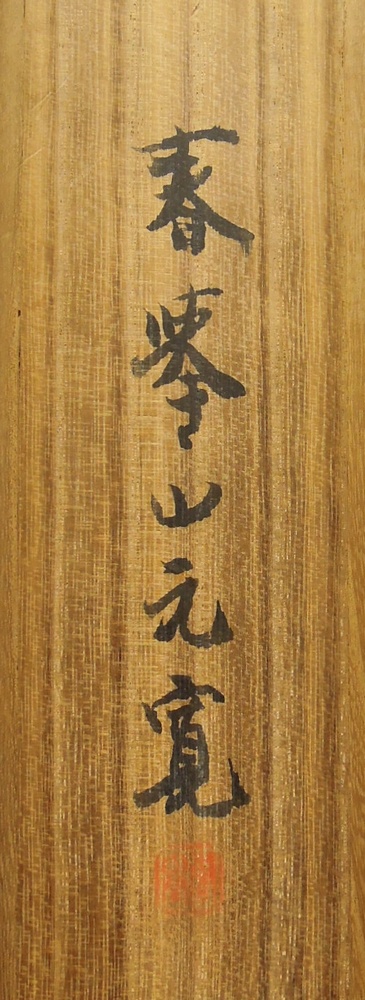 春擧山元寛